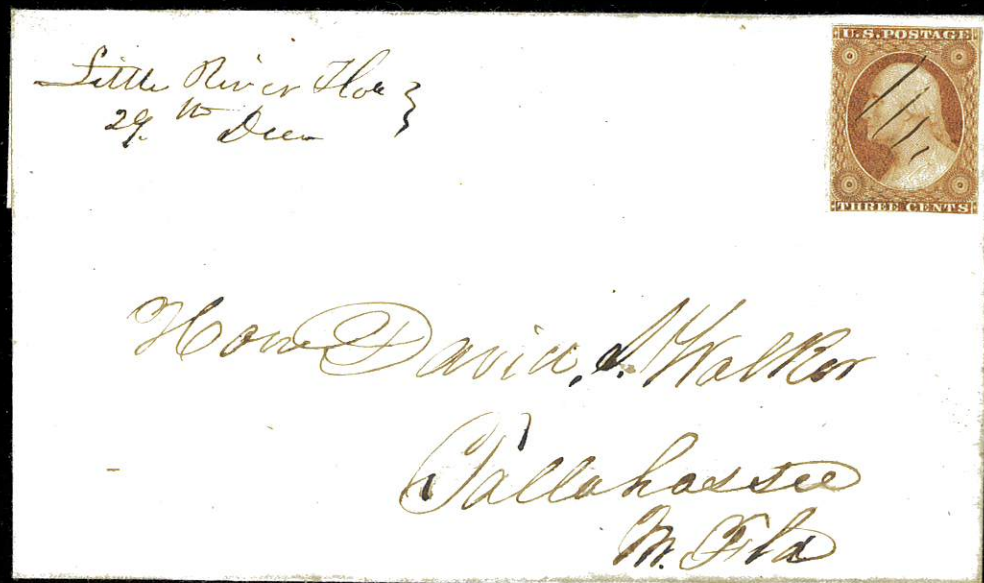 Little River Floa
29.th Decr
U.S. POSTAGE
THREE CENTS
Hon David, S. Walker
Tallahassee
M. Fla